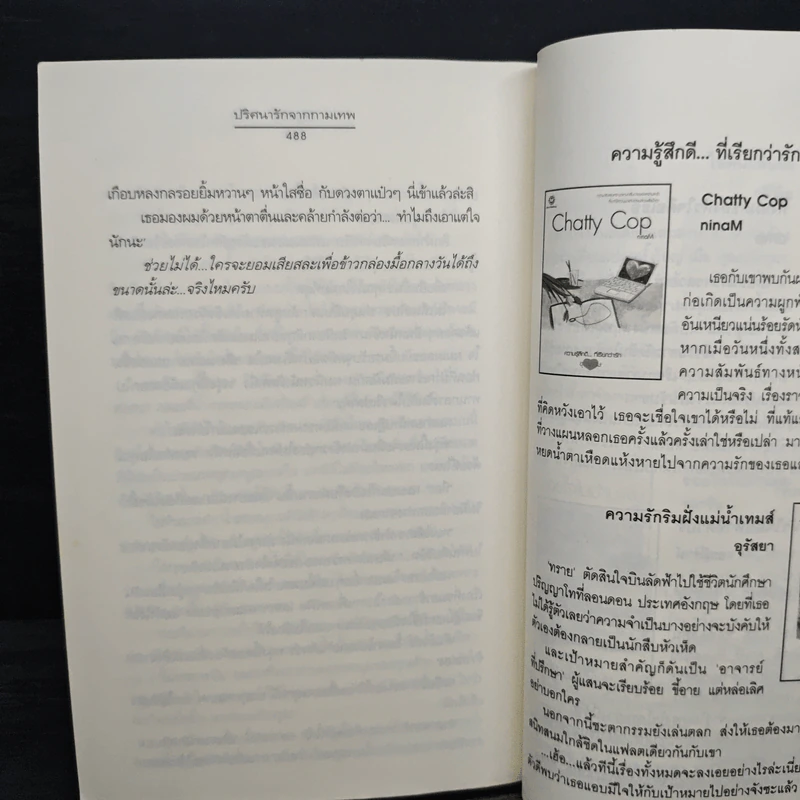 ปริศนารักจากกามเทพ
488
เกือบหลงกลรอยยิ้มหวานๆ หน้าใสซื่อ กับดวงตาแป๋วๆ นี่เข้าแล้วล่ะสิ
เธอมองผมด้วยหน้าตาตื่นและคล้ายกำลังต่อว่า... ทำไมถึงเอาแต่ใจ
นักนะ'
ช่วยไม่ได้...ใครจะยอมเสียสละเพื่อข้าวกล่องมื้อกลางวันได้ถึง
ขนาดนั้นล่ะ...จริงไหมครับ
ความรู้สึกดี... ที่เรียกว่ารัก
Chatty Cop
ninaM
ความรู้สึกดี... ที่เรียกว่ารัก
Chatty Cop
ninaM
เธอกับเขาพบกัน
ก่อเกิดเป็นความผูก
อันเหนียวแน่นร้อยรัด
หากเมื่อวันหนึ่งทั้ง
ความสัมพันธ์ทาง
ความเป็นจริง เรื่อง
ที่คิดหวังเอาไว้ เธอจะเชื่อใจเขาได้หรือไม่ ที่แท้
ที่วางแผนหลอกเธอครั้งแล้วครั้งเล่าใช่หรือเปล่า
หยดน้ำตาเหือดแห้งหายไปจากความรักของเธอ
ความรักริมฝั่งแม่น้ำเทมส์
อุรัสยา
'ทราย' ตัดสินใจบินลัดฟ้าไปใช้ชีวิตนักศึกษา
ปริญญาโทที่ลอนดอน ประเทศอังกฤษ โดยที่เธอ
ไม่ได้รู้ตัวเลยว่าความจำเป็นบางอย่างจะบังคับให้
ตัวเองต้องกลายเป็นนักสืบหัวเห็ด
และเป้าหมายสำคัญก็ดันเป็น 'อาจารย์
ที่ปรึกษา' ผู้แสนจะเรียบร้อย ขี้อาย แต่หล่อเลิศ
อย่าบอกใคร
นอกจากนี้ชะตากรรมยังเล่นตลก ส่งให้เธอต้องมา
สนิทสนมใกล้ชิดในแฟลตเดียวกันกับเขา
...เฮ้อ...แล้วทีนี้เรื่องทั้งหมดจะลงเอยอย่างไรล่ะเนี่ย
ตัวดีพบว่าเธอแอบมีใจให้กับเป้าหมายไปอย่างจังซะแล้ว